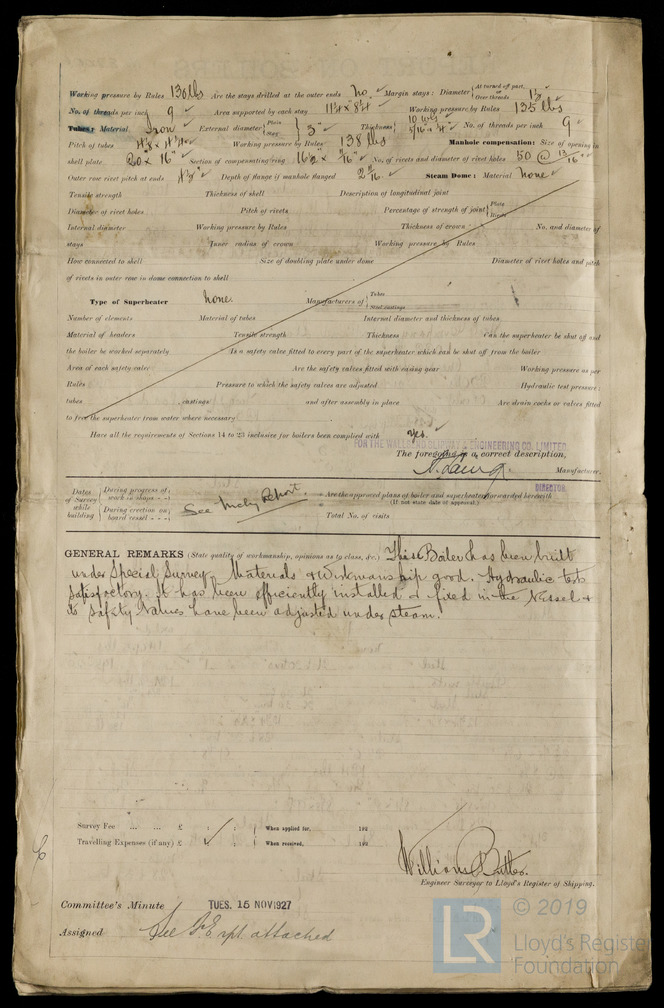 Working pressure by Rules 130 lbs Are the stays drilled at the outer ends no Margin stays: Diameter { At turned off part, Over threads 1½"
No. of threads per inch 9 Area supported by each stay 11¼ x 8¼ Working pressure by Rules 135 lbs
Tubes: Material Iron External diameter { Plain Stay } 3" Thickness { 10 WG 5/16 & ¼" No. of threads per inch 9
Pitch of tubes 4⅛ x 4¼ Working pressure by Rules 138 lbs Manhole compensation: Size of opening in
shell plate 20 x 16" Section of compensating ring No. of rivets and diameter of rivet holes 50 @ 13/16"
Outer row rivet pitch at ends Depth of flange if manhole flanged Steam Dome: Material none
Tensile strength Thickness of shell Description of longitudinal joint
Diameter of rivet holes Pitch of rivets Percentage of strength of joint { Plate Rivets
Internal diameter Working pressure by Rules Thickness of crown No. and diameter of
stays Inner radius of crown Working pressure by Rules
How connected to shell Size of doubling plate under dome Diameter of rivet holes and pitch
of rivets in outer row in dome connection to shell
Type of Superheater none. Manufacturers of { Tubes Steel castings
Number of elements Material of tubes Internal diameter and thickness of tubes
Material of headers Tensile strength Thickness Can the superheater be shut off and
the boiler be worked separately Is a safety valve fitted to every part of the superheater which can be shut off from the boiler
Area of each safety valve Are the safety valves fitted with easing gear Working pressure as per
Rules Pressure to which the safety valves are adjusted Hydraulic test pressure:
tubes castings and after assembly in place Are drain cocks or valves fitted
to free the superheater from water where necessary
Have all the requirements of Sections 14 to 23 inclusive for boilers been complied with yes.
FOR THE WALLSEND SLIPWAY & ENGINEERING CO. LIMITED
The foregoing is a correct description,
Manufacturer.
DIRECTOR
Dates of Survey while building { During progress of work in shops - - During erection on board vessel - - - } See Mchy Report. Are the approved plans of boiler and superheater forwarded herewith
(If not state date of approval.)
Total No. of visits
GENERAL REMARKS (State quality of workmanship, opinions as to class, &c.) This Boiler has been built
under Special Survey. Materials & Workmanship good. Hydraulic tests
satisfactory. It has been efficiently installed & fixed in the Vessel &
its Safety Valves have been adjusted under steam.
Survey Fee ... ... £ : : When applied for, 192
Travelling Expenses (if any) £ : : When received, 192
William Butler.
Engineer Surveyor to Lloyd's Register of Shipping.
Committee's Minute TUES. 15 NOV 1927
Assigned See F.E. rpt. attached
LR © 2019
Lloyd's Register
Foundation